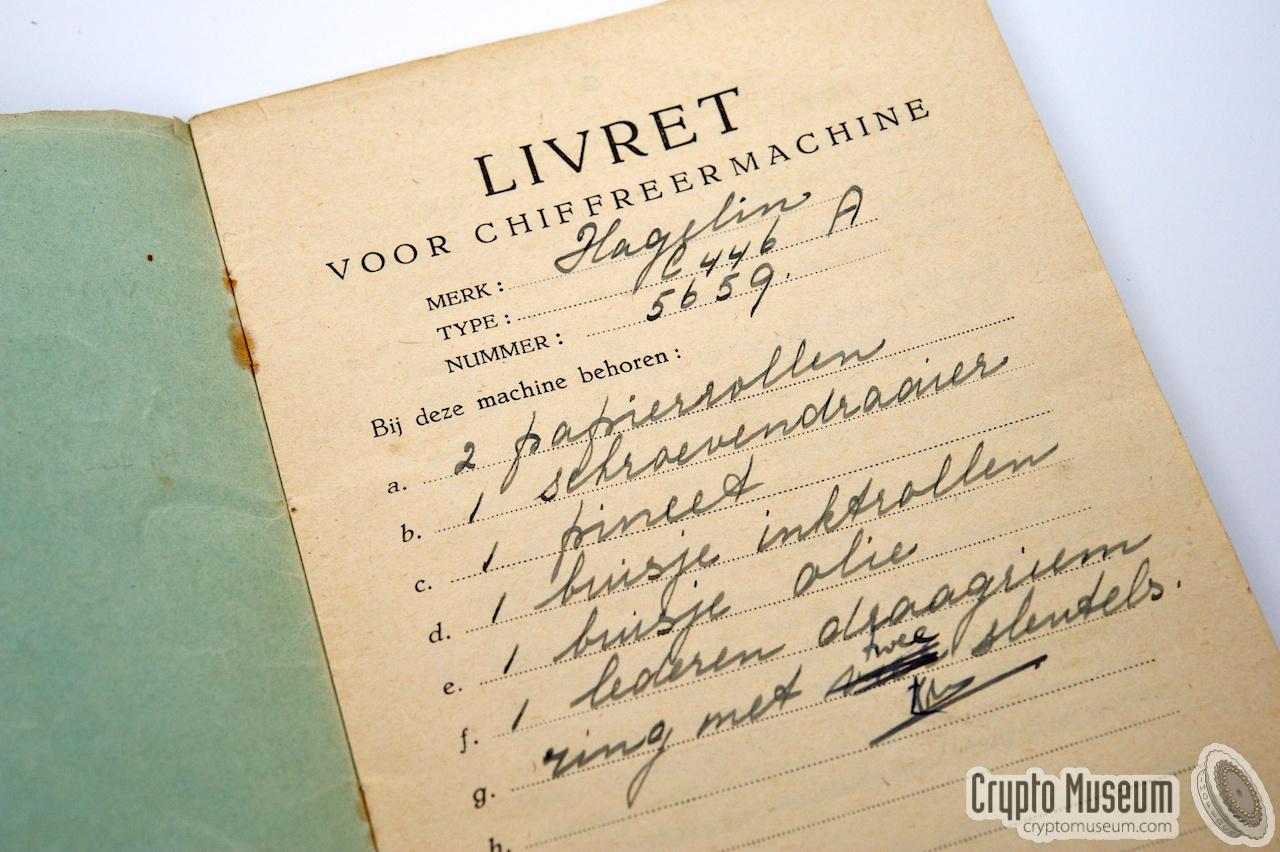 LIVRET
VOOR CHIFFREERMACHINE
MERK: Hagelin
TYPE: C 446 A
NUMMER: 5659.
Bij deze machine behoren:
a. 2 papierrollen
b. 1 schroevendraaier
c. 1 pincet
d. 1 buisje inktrollen
e. 1 buisje olie
f. 1 lederen draagriem
g. ring met twee sleutels.
h.
Crypto Museum
cryptomuseum.com